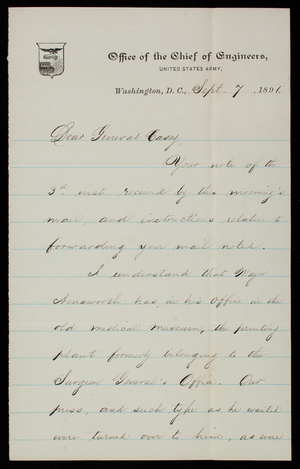 Office of the Chief of Engineers,
UNITED STATES ARMY,
Washington, D. C., Sept. 7, 1891.
Dear General Casey,
Your note of the
3d inst received by this morning's
mail, and instructions relative to
forwarding your mail noted.
I understand that Major
Ainsworth has, in his office in the
old medical museum, the printing
plant formerly belonging to the
Surgeon General's Office. Our
press, and such type as he wanted
were turned over to him, as were